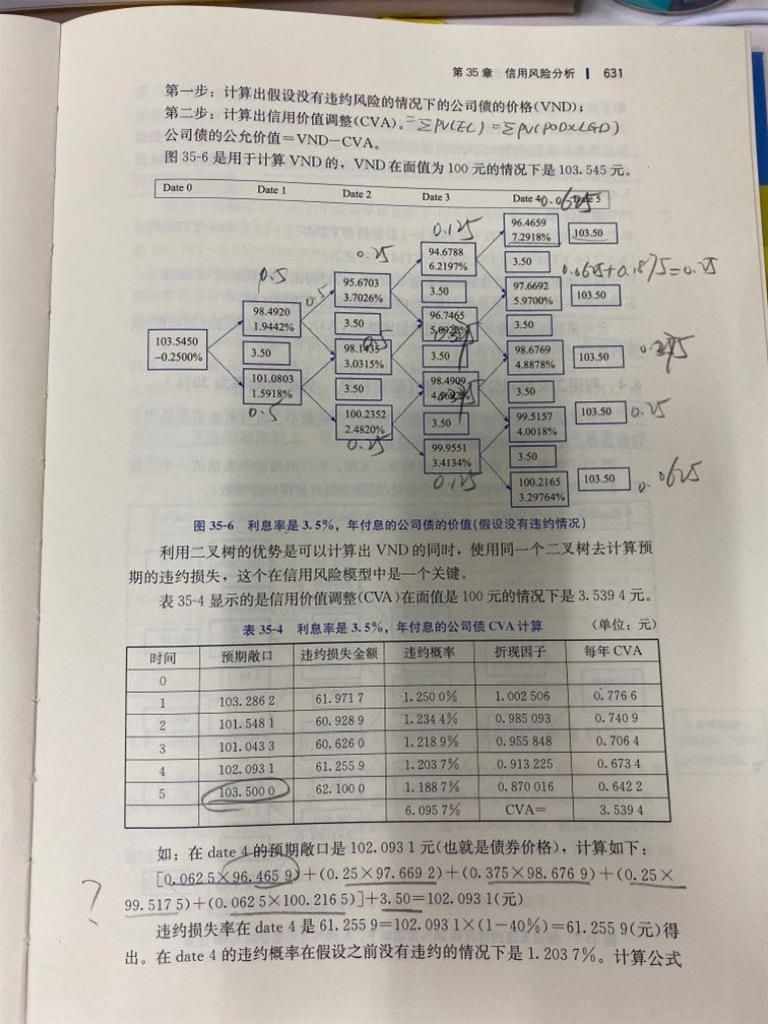 第35章 信用风险分析 | 631
第一步：计算出假设没有违约风险的情况下的公司债的价格(VND)；
第二步：计算出信用价值调整(CVA)。= ΣPV(EL) = ΣPV(POD×LGD)
公司债的公允价值=VND-CVA。
图 35-6 是用于计算 VND 的，VND 在面值为 100 元的情况下是 103.545 元。
Date 0 Date 1 Date 2 Date 3 Date 4 Date 5
0.0625
96.4659
7.2918%
103.50
0.125
94.6788
6.2197%
3.50
0.25
0.0625+0.1875=0.25
95.6703
3.7026%
3.50
97.6692
5.9700%
103.50
0.5
0.5
98.4920
1.9442%
3.50
96.7465
3.50
103.5450
-0.2500%
3.50
98.1435
3.0315%
0.5
3.50
98.6769
4.8878%
103.50
0.375
101.0803
1.5918%
3.50
98.4909
3.50
0.5
100.2352
2.4820%
3.50
99.5157
4.0018%
103.50
0.25
0.25
99.9551
3.4134%
3.50
0.125
100.2165
3.29764%
103.50
0.0625
图 35-6 利息率是 3.5%，年付息的公司债的价值(假设没有违约情况)
利用二叉树的优势是可以计算出 VND 的同时，使用同一个二叉树去计算预
期的违约损失，这个在信用风险模型中是一个关键。
表 35-4 显示的是信用价值调整(CVA)在面值是 100 元的情况下是 3.539 4 元。
表 35-4 利息率是 3.5%，年付息的公司债 CVA 计算 (单位：元)
时间 预期敞口 违约损失金额 违约概率 折现因子 每年 CVA
0
1 103.286 2 61.971 7 1.250 0% 1.002 506 0.776 6
2 101.548 1 60.928 9 1.234 4% 0.985 093 0.740 9
3 101.043 3 60.626 0 1.218 9% 0.955 848 0.706 4
4 102.093 1 61.255 9 1.203 7% 0.913 225 0.673 4
5 103.500 0 62.100 0 1.188 7% 0.870 016 0.642 2
6.095 7% CVA= 3.539 4
如：在 date 4 的预期敞口是 102.093 1 元(也就是债券价格)，计算如下：
[0.062 5×96.465 9)+(0.25×97.669 2)+(0.375×98.676 9)+(0.25×
?
99.517 5)+(0.062 5×100.216 5)]+3.50=102.093 1(元)
违约损失率在 date 4 是 61.255 9=102.093 1×(1-40%)=61.255 9(元)得
出。在 date 4 的违约概率在假设之前没有违约的情况下是 1.203 7%。计算公式